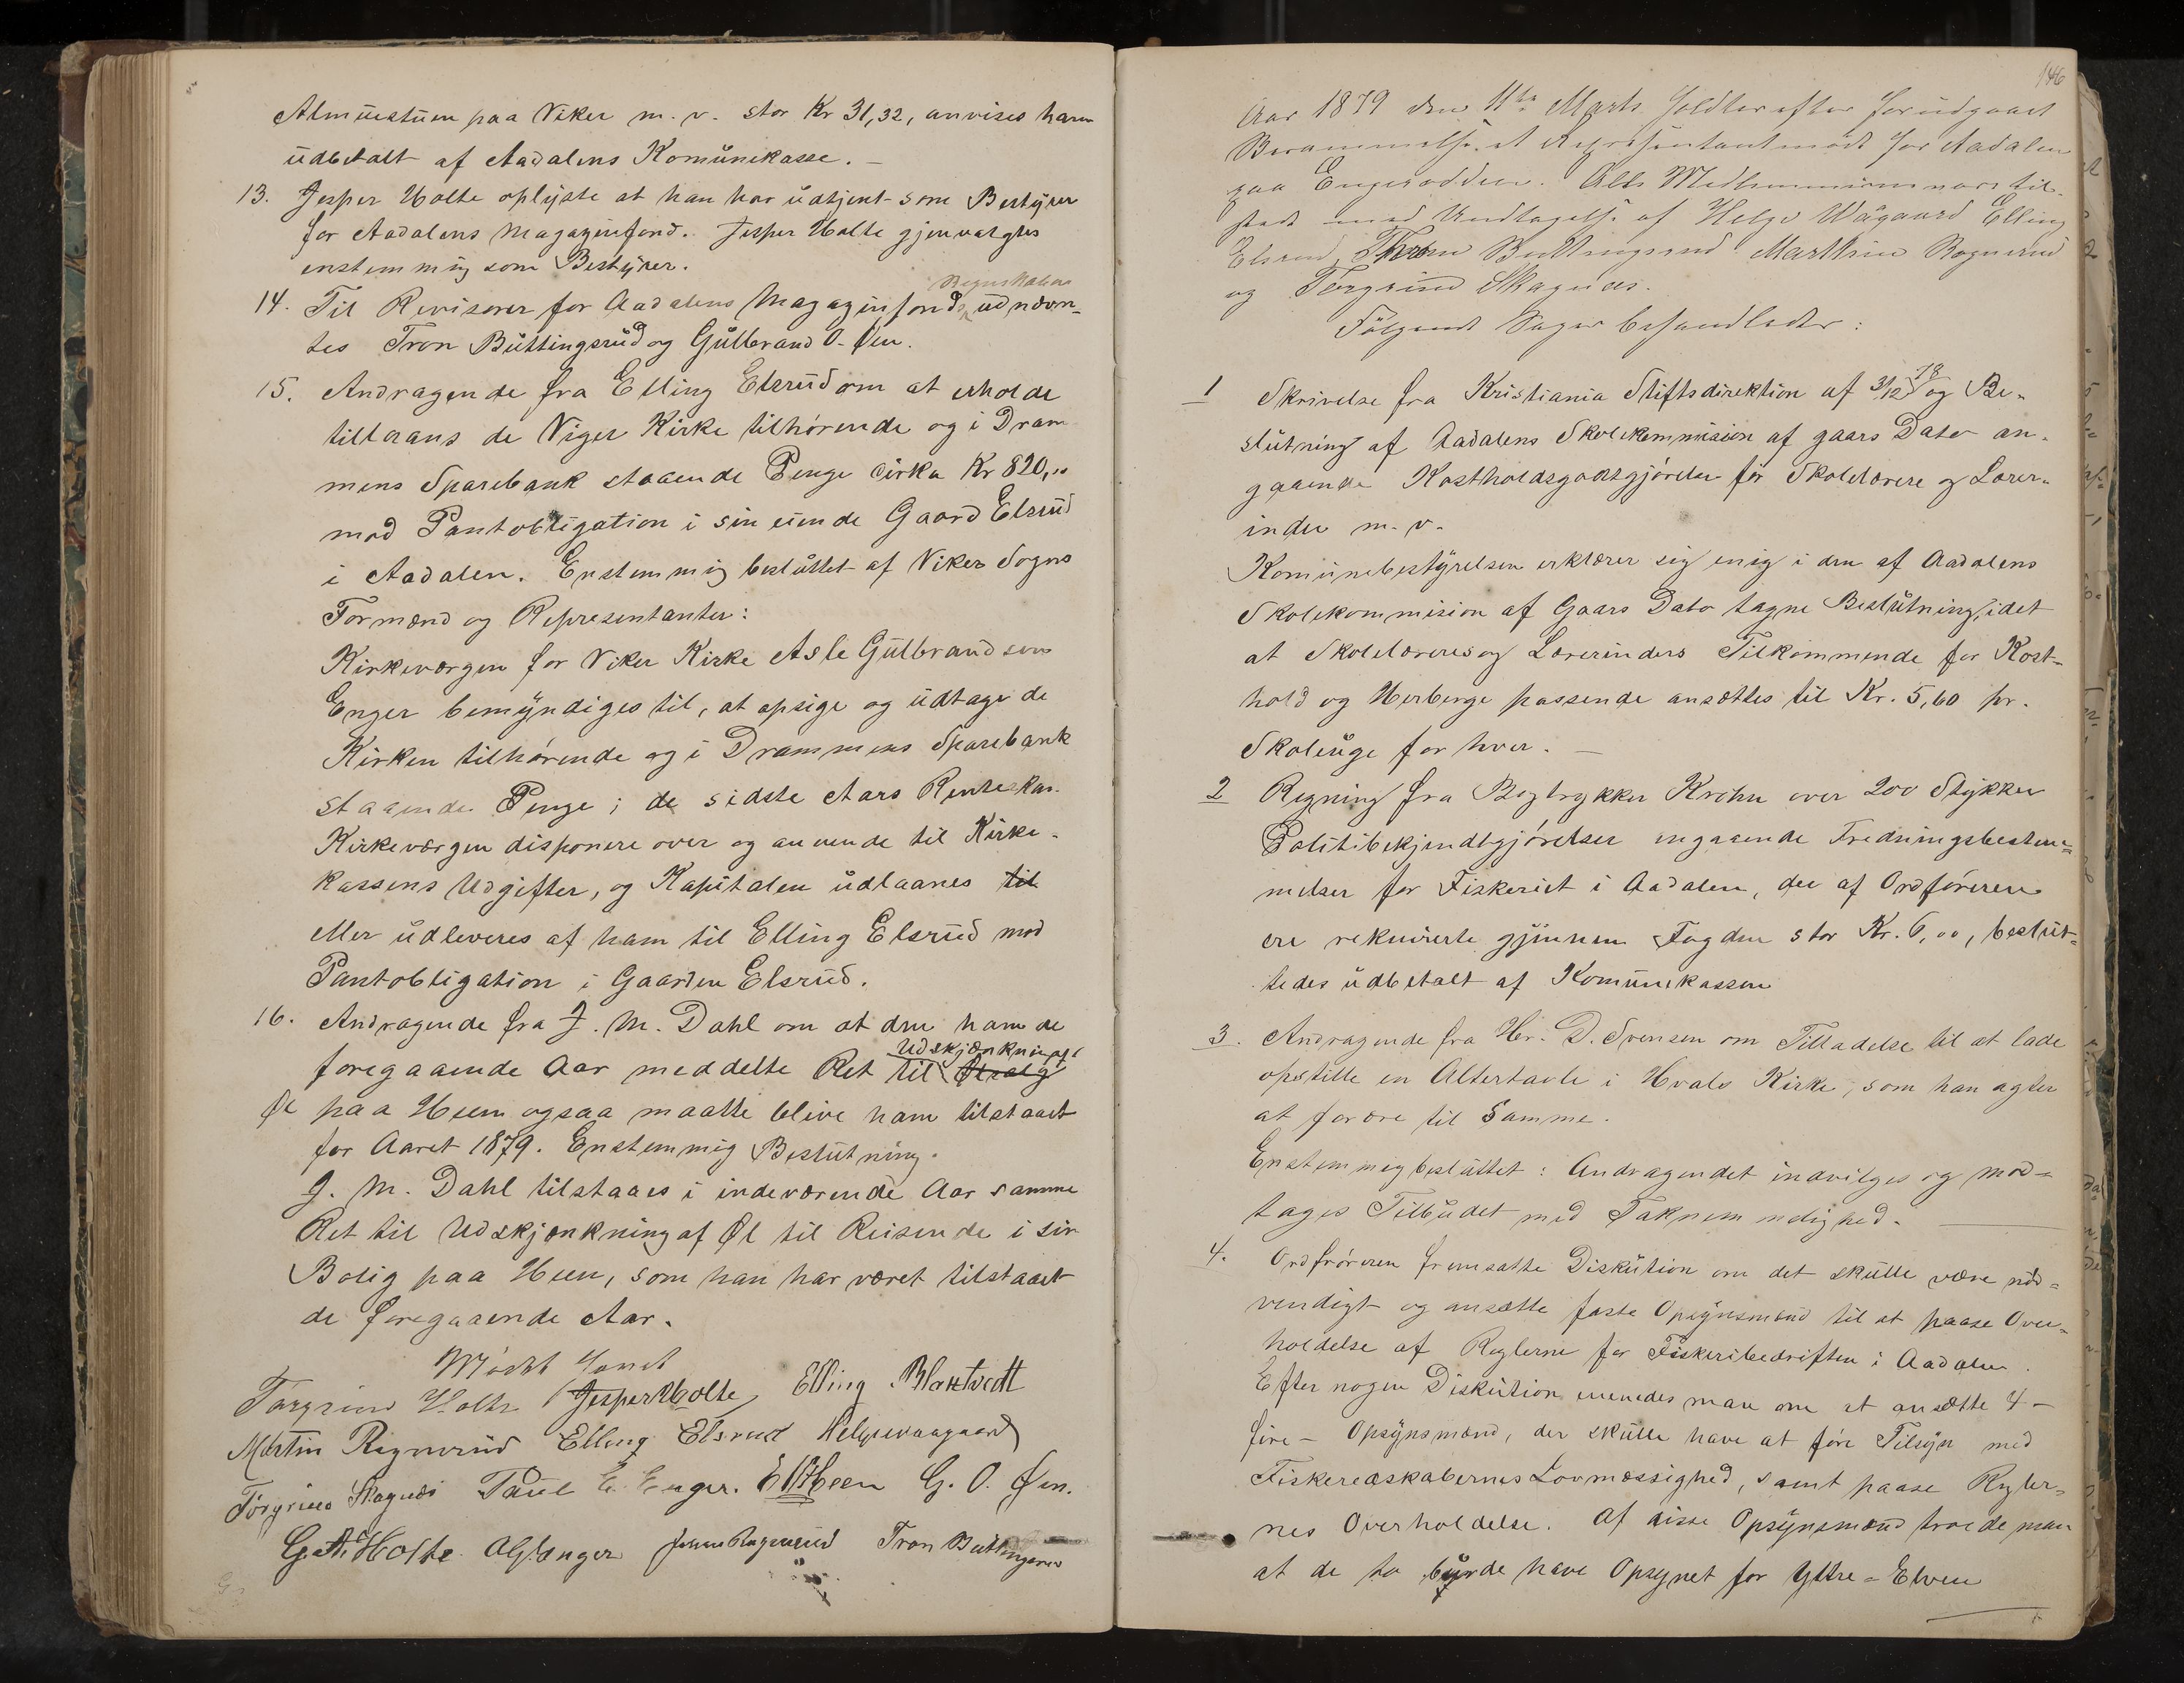 Almuestuen paa Viker m. v. stor Kr 31,32, anvises ham
udbetalt af Aadalens Komunekasse. —
13. Jesper Holte oplyste at han har udtjent som Bestyrer
for Aadalens Magazinfond. Jesper Holte gjenvalgtes
enstemmig som Bestyrer.
Regnskaber
14. Til Revisorer for Aadalens Magazinfonds udnævn-
tes Tron Buttingsrud og Gulbrand O. Øen.
15. Andragende fra Elling Elsrud om at erholde
tillaans de Viger Kirke tilhørende og i Dram
mens Sparebank staaende Penge cirka Kr 820,00
mod Pantobligation i sin eiende Gaard Elsrud
i Aadalen. Enstemmig besluttet af Viker Sogns
Formænd og Representanter:
Kirkeværgen for Viker Kirke Asle Gulbrandsen
Enger bemyndiges til, at opsige og udtage de
Kirken tilhørende og i Drammens Sparebank
staaende Penge; de sidste Aars Renter kan
Kirkeværgen disponere over og anvende til Kirke-
kassens Udgifter, og Kapitalen udlaanes til
eller udleveres af ham til Elling Elsrud mod
Pantobligation i Gaarden Elsrud.
16. Andragende fra J. M. Dahl om at den ham de
Udskjænkning af
foregaaende Aar meddelte Ret til Ølsalg
Øl paa Heen ogsaa maatte blive ham tilstaaet
for Aaret 1879. Enstemmig Beslutning.
J. M. Dahl tilstaaes i indeværende Aar samme
Ret til Udskjænkning af Øl til Reisende i sin
Bolig paa Heen, som han har været tilstaaet
de foregaaende Aar.
Mødet hævet
Torgrim Holte Jesper Holte Elling Blakstvedt
Martin Rognerud Elling Elsrud Helge Waagaard
Torgrim Skagnæs Paul E. Enger. E Heen G. O. Øen.
G. A. Holte. O G Enger Rognerud Tron Buttingsrud
146
Aar 1879 den 11te Marts holdtes efter forudgaaet
Berammelse et Representantmøde for Aadalen
paa Engerodden. Alle Medlemmerne vare til-
stede med Undtagelse af Helge Waagaard Elling
Elsrud, Thron Buttingsrud Marthin Rognerud
og Torgrim Skagnæs.
Følgende Sager behandledes:
1 Skrivelse fra Kristiania Stiftsdirektion af 3/12 78 og Be-
slutning af Aadalens Skolekommision af gaars Dato an-
gaaende Kostholdsgodtgjørelse for Skolelærere og Lærer-
inder m. v.
Komunebestyrelsen erklærer sig enig i den af Aadalens
Skolekommision af Gaars Dato tagne Beslutning, idet
at Skolelæreres og Lærerinders Tilkommende for Kost-
hold og Herberge passende ansættes til Kr. 5,60 pr.
Skoleuge for hver. —
2 Regning fra Bogtrykker Krohn over 200 Stykker
Politibekjendtgjørelser angaaende Fredningsbestem-
melser for Fiskeriet i Aadalen, der af Ordføreren
ere rekvirerte gjennem Fogden stor Kr. 6,00, beslut-
tedes udbetalt af Komunekassen
3. Andragende fra Hr. D. Svensen om Tilladelse til at lade
opstille en Altertavle i Hvals Kirke, som han agter
at forære til Samme.
Enstemmig besluttet: Andragendet indvilges og mod-
tages Tilbudet med Taknemmelighed.
4. Ordførøren fremsatte Diskution om det skulle være nød-
vendigt og ansætte faste Opsynsmænd til at paase Over-
holdelse af Reglerne for Fiskeribedriften i Aadalen.
Efter nogen Diskution enenedes man om at ansætte 4 —
fire — Opsynsmænd, der skulle have at føre Tilsyn med
Fiskeredskabernes Lovmæssighed, samt paase Regler-
nes Overholdelse. Af disse Opsynsmænd troede man
at de to burde have Opsynet for Yttre-Elven